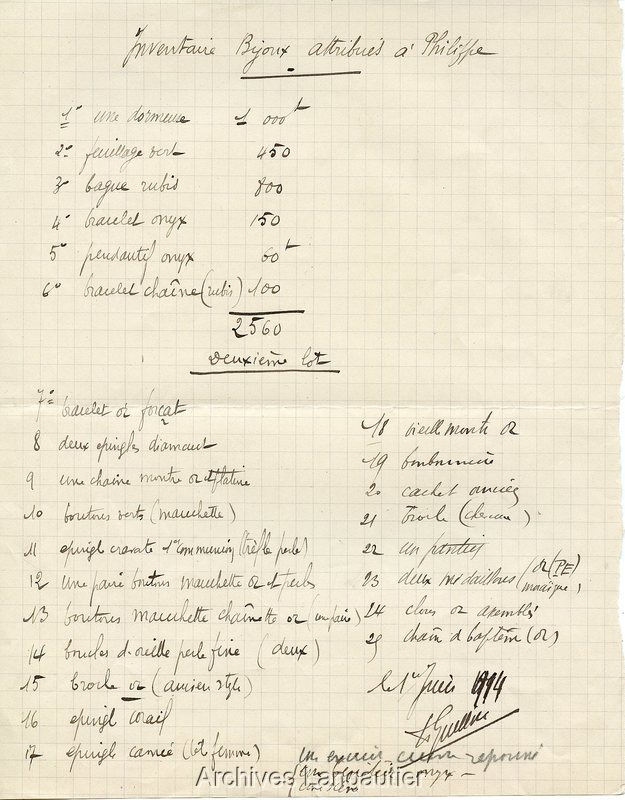 Inventaire Bijoux attribués à Philippe
1° une dormeuse 1 000 t
2° feuillage vert 450
3° bague rubis 800
4° bracelet onyx 150
5° pendantif onyx 60 t
6° bracelet chaîne (rubis) 100
2560
Deuxième lot
7° bracelet or forçat
8 deux epingles diamant
9 une chaine montre or et platine
10 boutons verts (manchette)
11 epingl cravate 1ere Communion (trèfle perle)
12 une paire boutons manchette or et perles
13 boutons manchette chaînette or (un paire)
14 boucles d'oreille perle fine (deux)
15 broche or (ancien style)
16 epingl corail
17 epingle camée (tête femme)
18 vieille montre or
19 bonbonnière
20 cachet ancien
21 broche
22 un
23 deux médaillons (or (PE) mosaïque)
24 clous or
25 chaîn d baptêm (or)
le 1er Juin
onyx
Archives Landautier